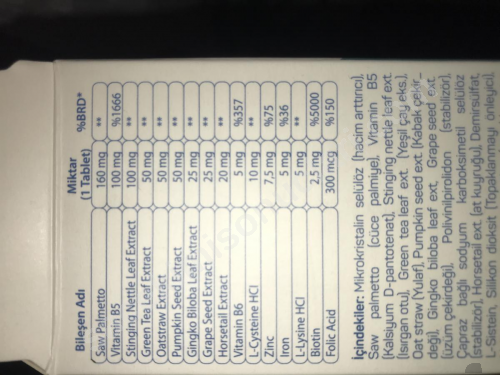 Bileşen Adı Miktar (1 Tablet) %BRD*
Saw Palmetto 160 mg **
Vitamin B5 100 mg %1666
Stinging Nettle Leaf Extract 100 mg **
Green Tea Leaf Extract 50 mg **
Oatstraw Extract 50 mg **
Pumpkin Seed Extract 50 mg **
Gingko Biloba Leaf Extract 25 mg **
Grape Seed Extract 25 mg **
Horsetail Extract 20 mg **
Vitamin B6 5 mg %357
L-Cysteine HCl 10 mg **
Zinc 7,5 mg %75
Iron 5 mg %36
L-Lysine HCl 5 mg **
Biotin 2,5 mg %5000
Folic Acid 300 mcg %150
İçindekiler: Mikrokristalin selüloz (hacim arttırıcı),
Saw palmetto (cüce palmiye), Vitamin B5
(Kalsiyum D-pantotenat), Stinging nettle leaf ext.
(Isırgan otu), Green tea leaf ext. (Yeşil çay eks.),
Oat straw (Yulaf), Pumpkin seed ext. (Kabak çekir-
değı), Gingko biloba leaf ext., Grape seed ext.
(üzüm çekirdeği), Polivinilprolidon (stabilizör),
Çapraz bağlı sodyum karboksimetil selüloz
(stabilizör), Horsetail ext. (at kuyruğu), Demirsülfat,
L-Sistein, Silikon dioksit (Topaklanmayı önleyici),